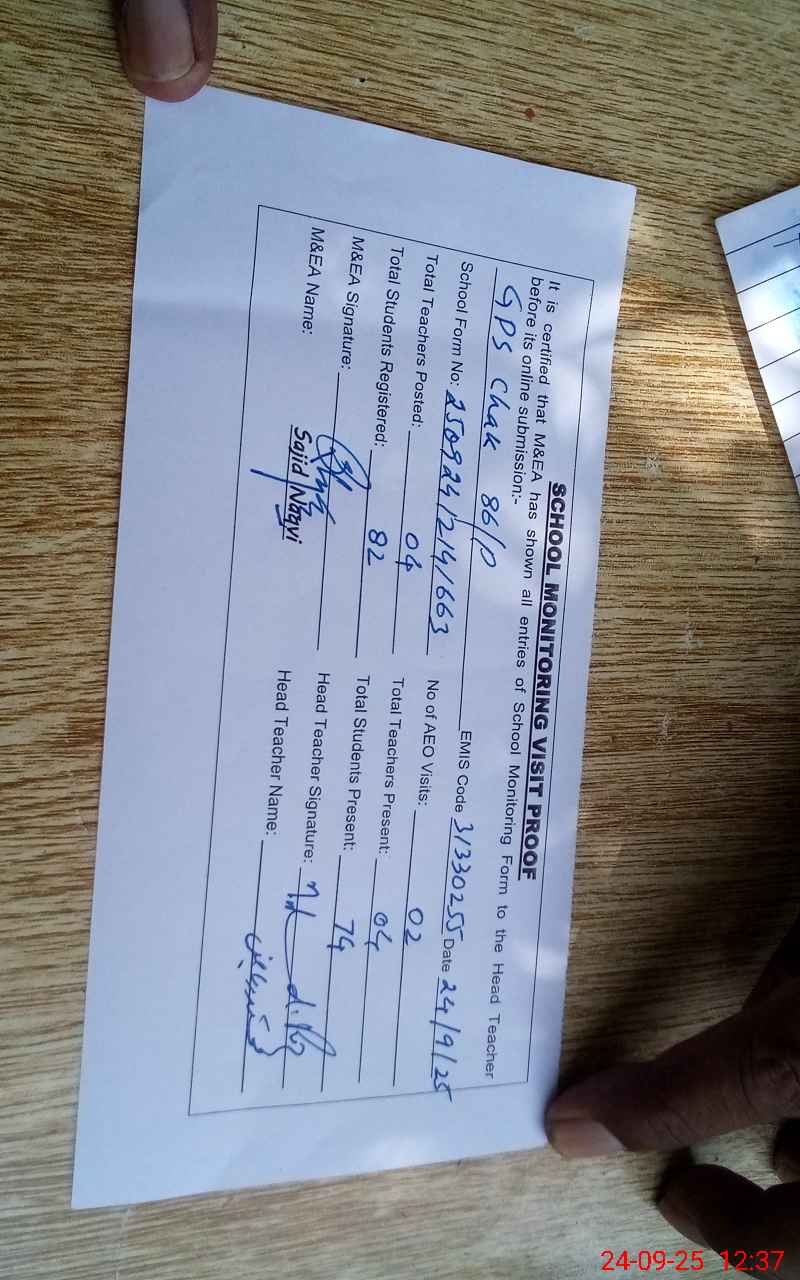 SCHOOL MONITORING VISIT PROOF
It is certified that M&EA has shown all entries of School Monitoring Form to the Head Teacher
before its online submission:-
GPS Chak 86/P EMIS Code 31330255 Date 24/9/25
School Form No: 25092412141663 No of AEO Visits: 02
Total Teachers Posted: 04 Total Teachers Present: 04
Total Students Registered: 82 Total Students Present: 74
M&EA Signature: Head Teacher Signature:
M&EA Name: Sajid Naqvi Head Teacher Name:
24-09-25 12:37